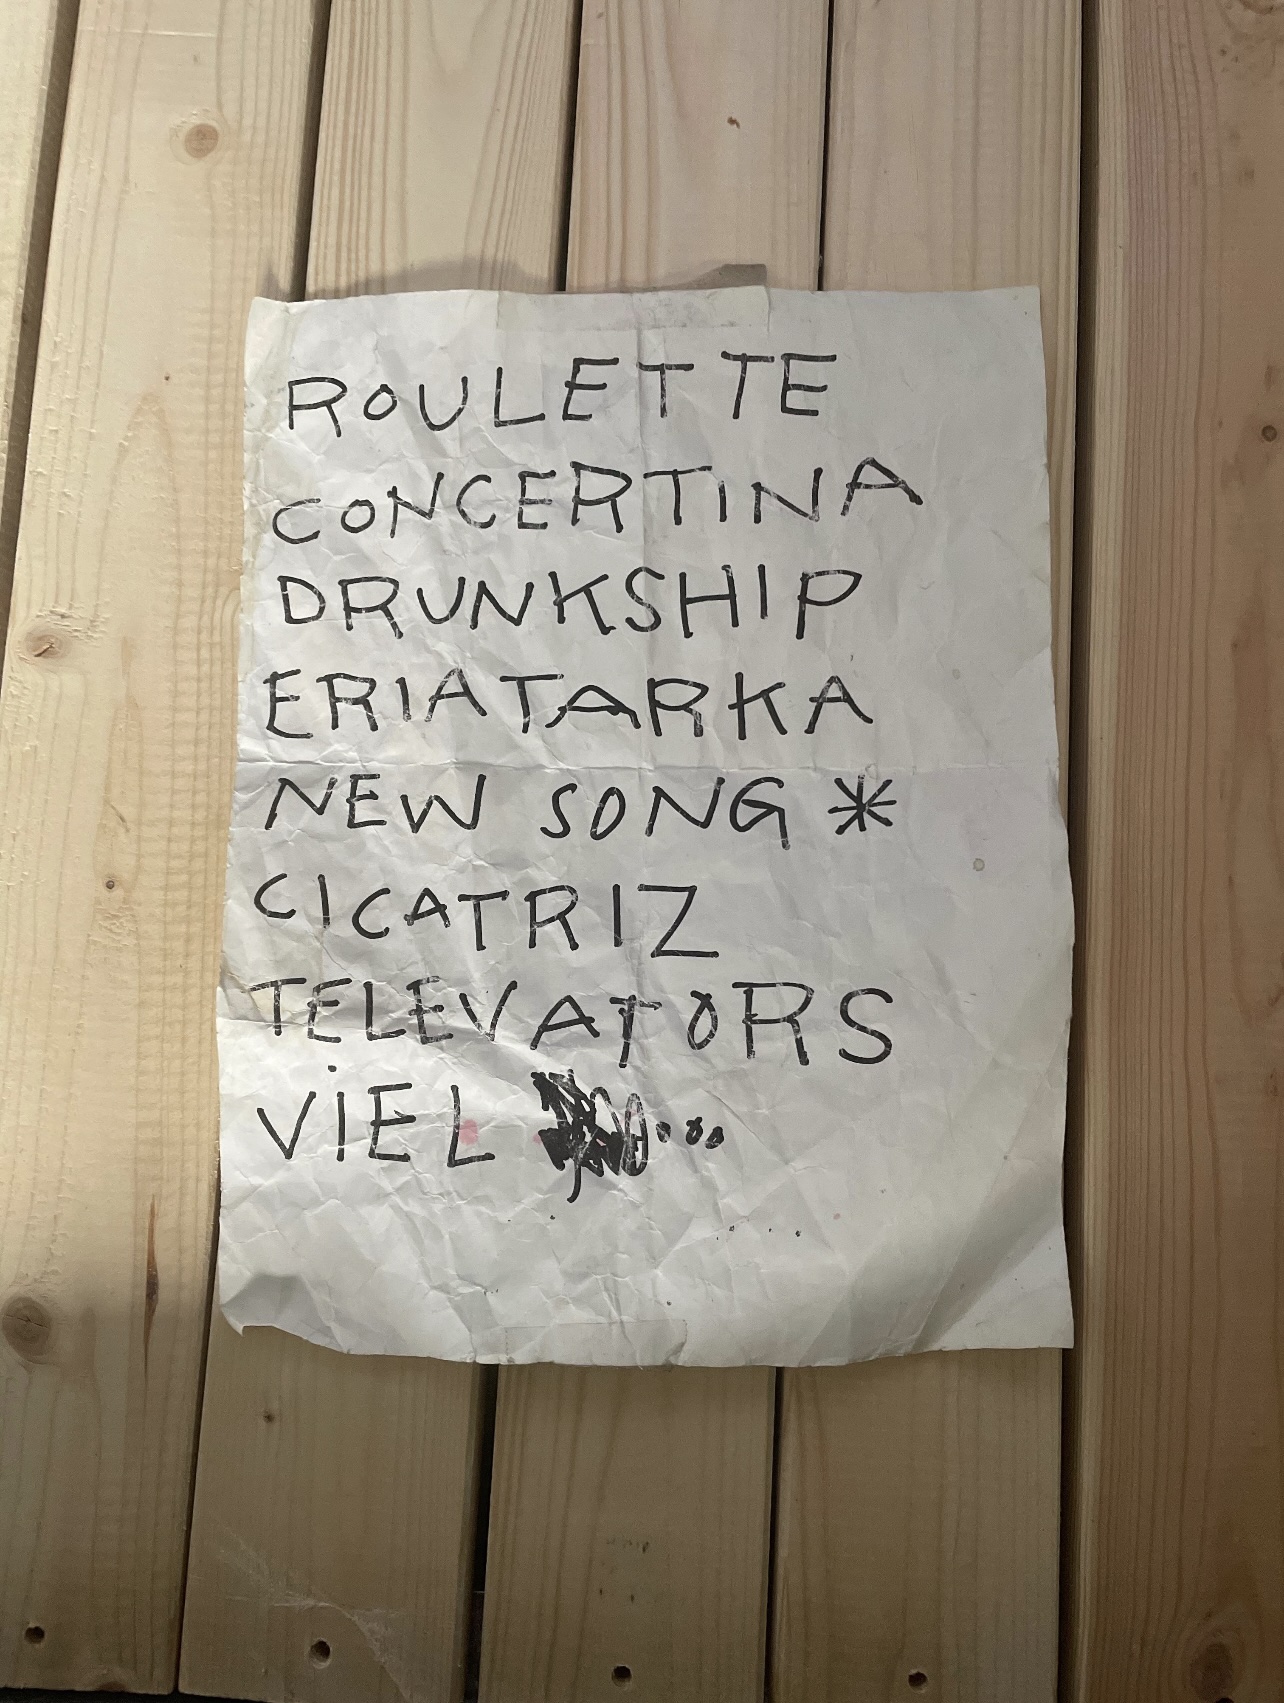 ROULETTE
CONCERTINA
DRUNKSHIP
ERIATARKA
NEW SONG *
CICATRIZ
TELEVATORS
VIEL ...